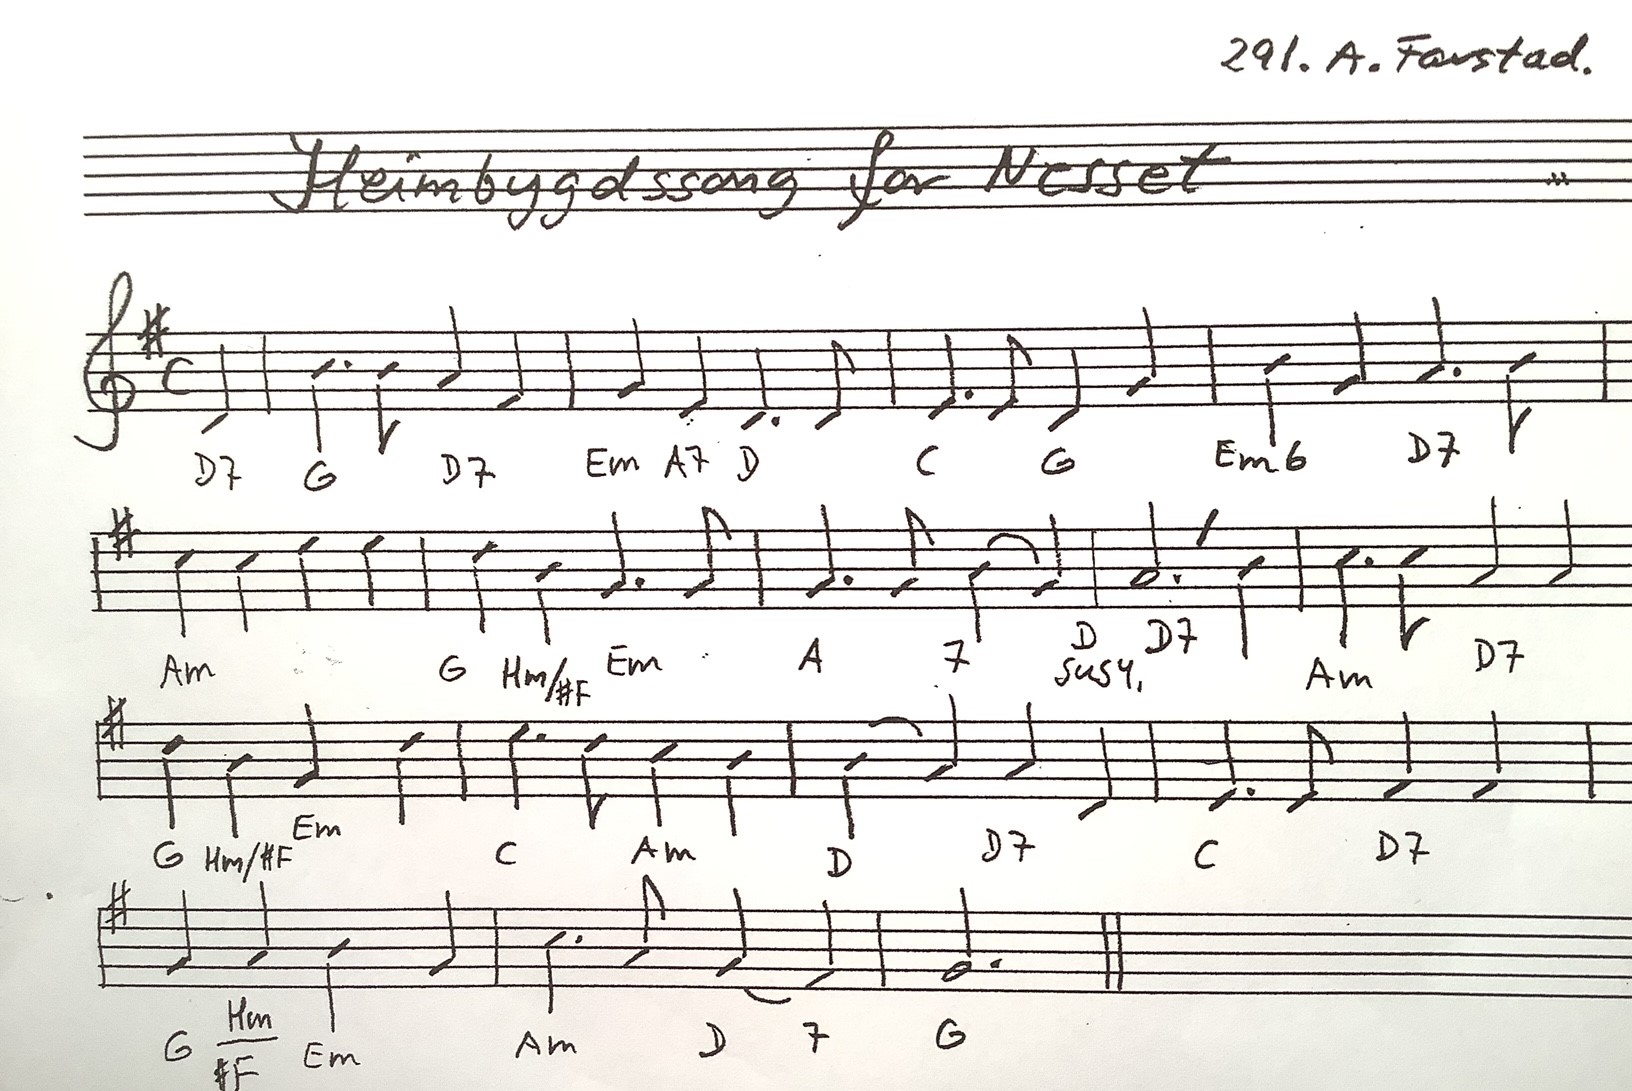 291. A. Farstad.
Heimbygdssong for Nesset
D7 G D7 Em A7 D C G Em6 D7
Am G Hm/#F Em A 7 D sus4, D7 Am D7
G Hm/#F Em C Am D D7 C D7
G Hm/#F Em Am D 7 G